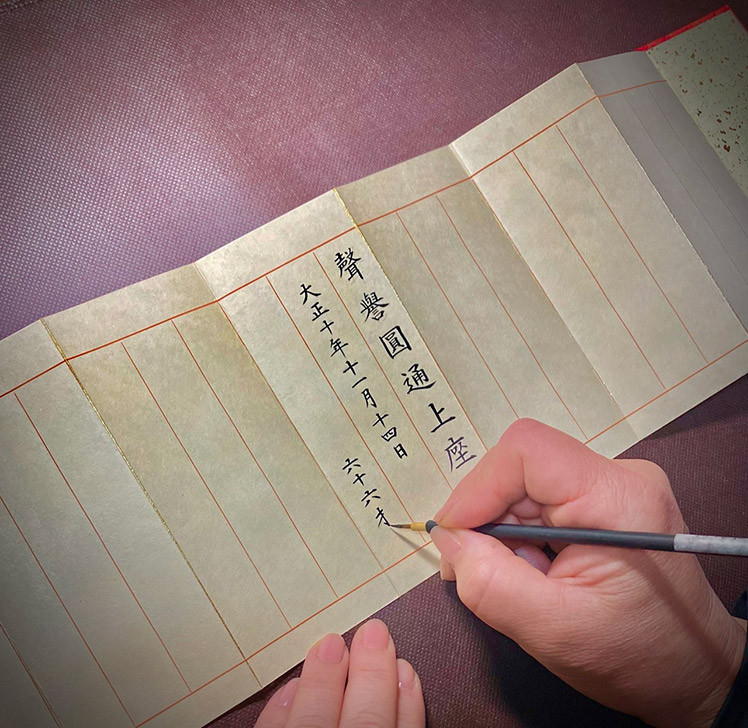 聲譽圓通上座
大正十年十一月十四日
六十六才